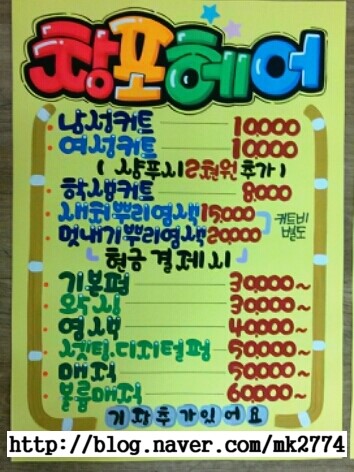 창포헤어
남성커트 10,000
여성커트 10,000
( 샴푸시 2천원 추가 )
학생커트 8,000
새치뿌리염색 15,000
멋내기뿌리염색 20,000
커트비
별도
현금결제시
기본펌 30,000~
왁싱 30,000~
염색 40,000~
셋팅.디지털펌 50,000~
매직 50,000~
볼륨매직 60,000~
기장추가있어요
http://blog.naver.com/mk2774